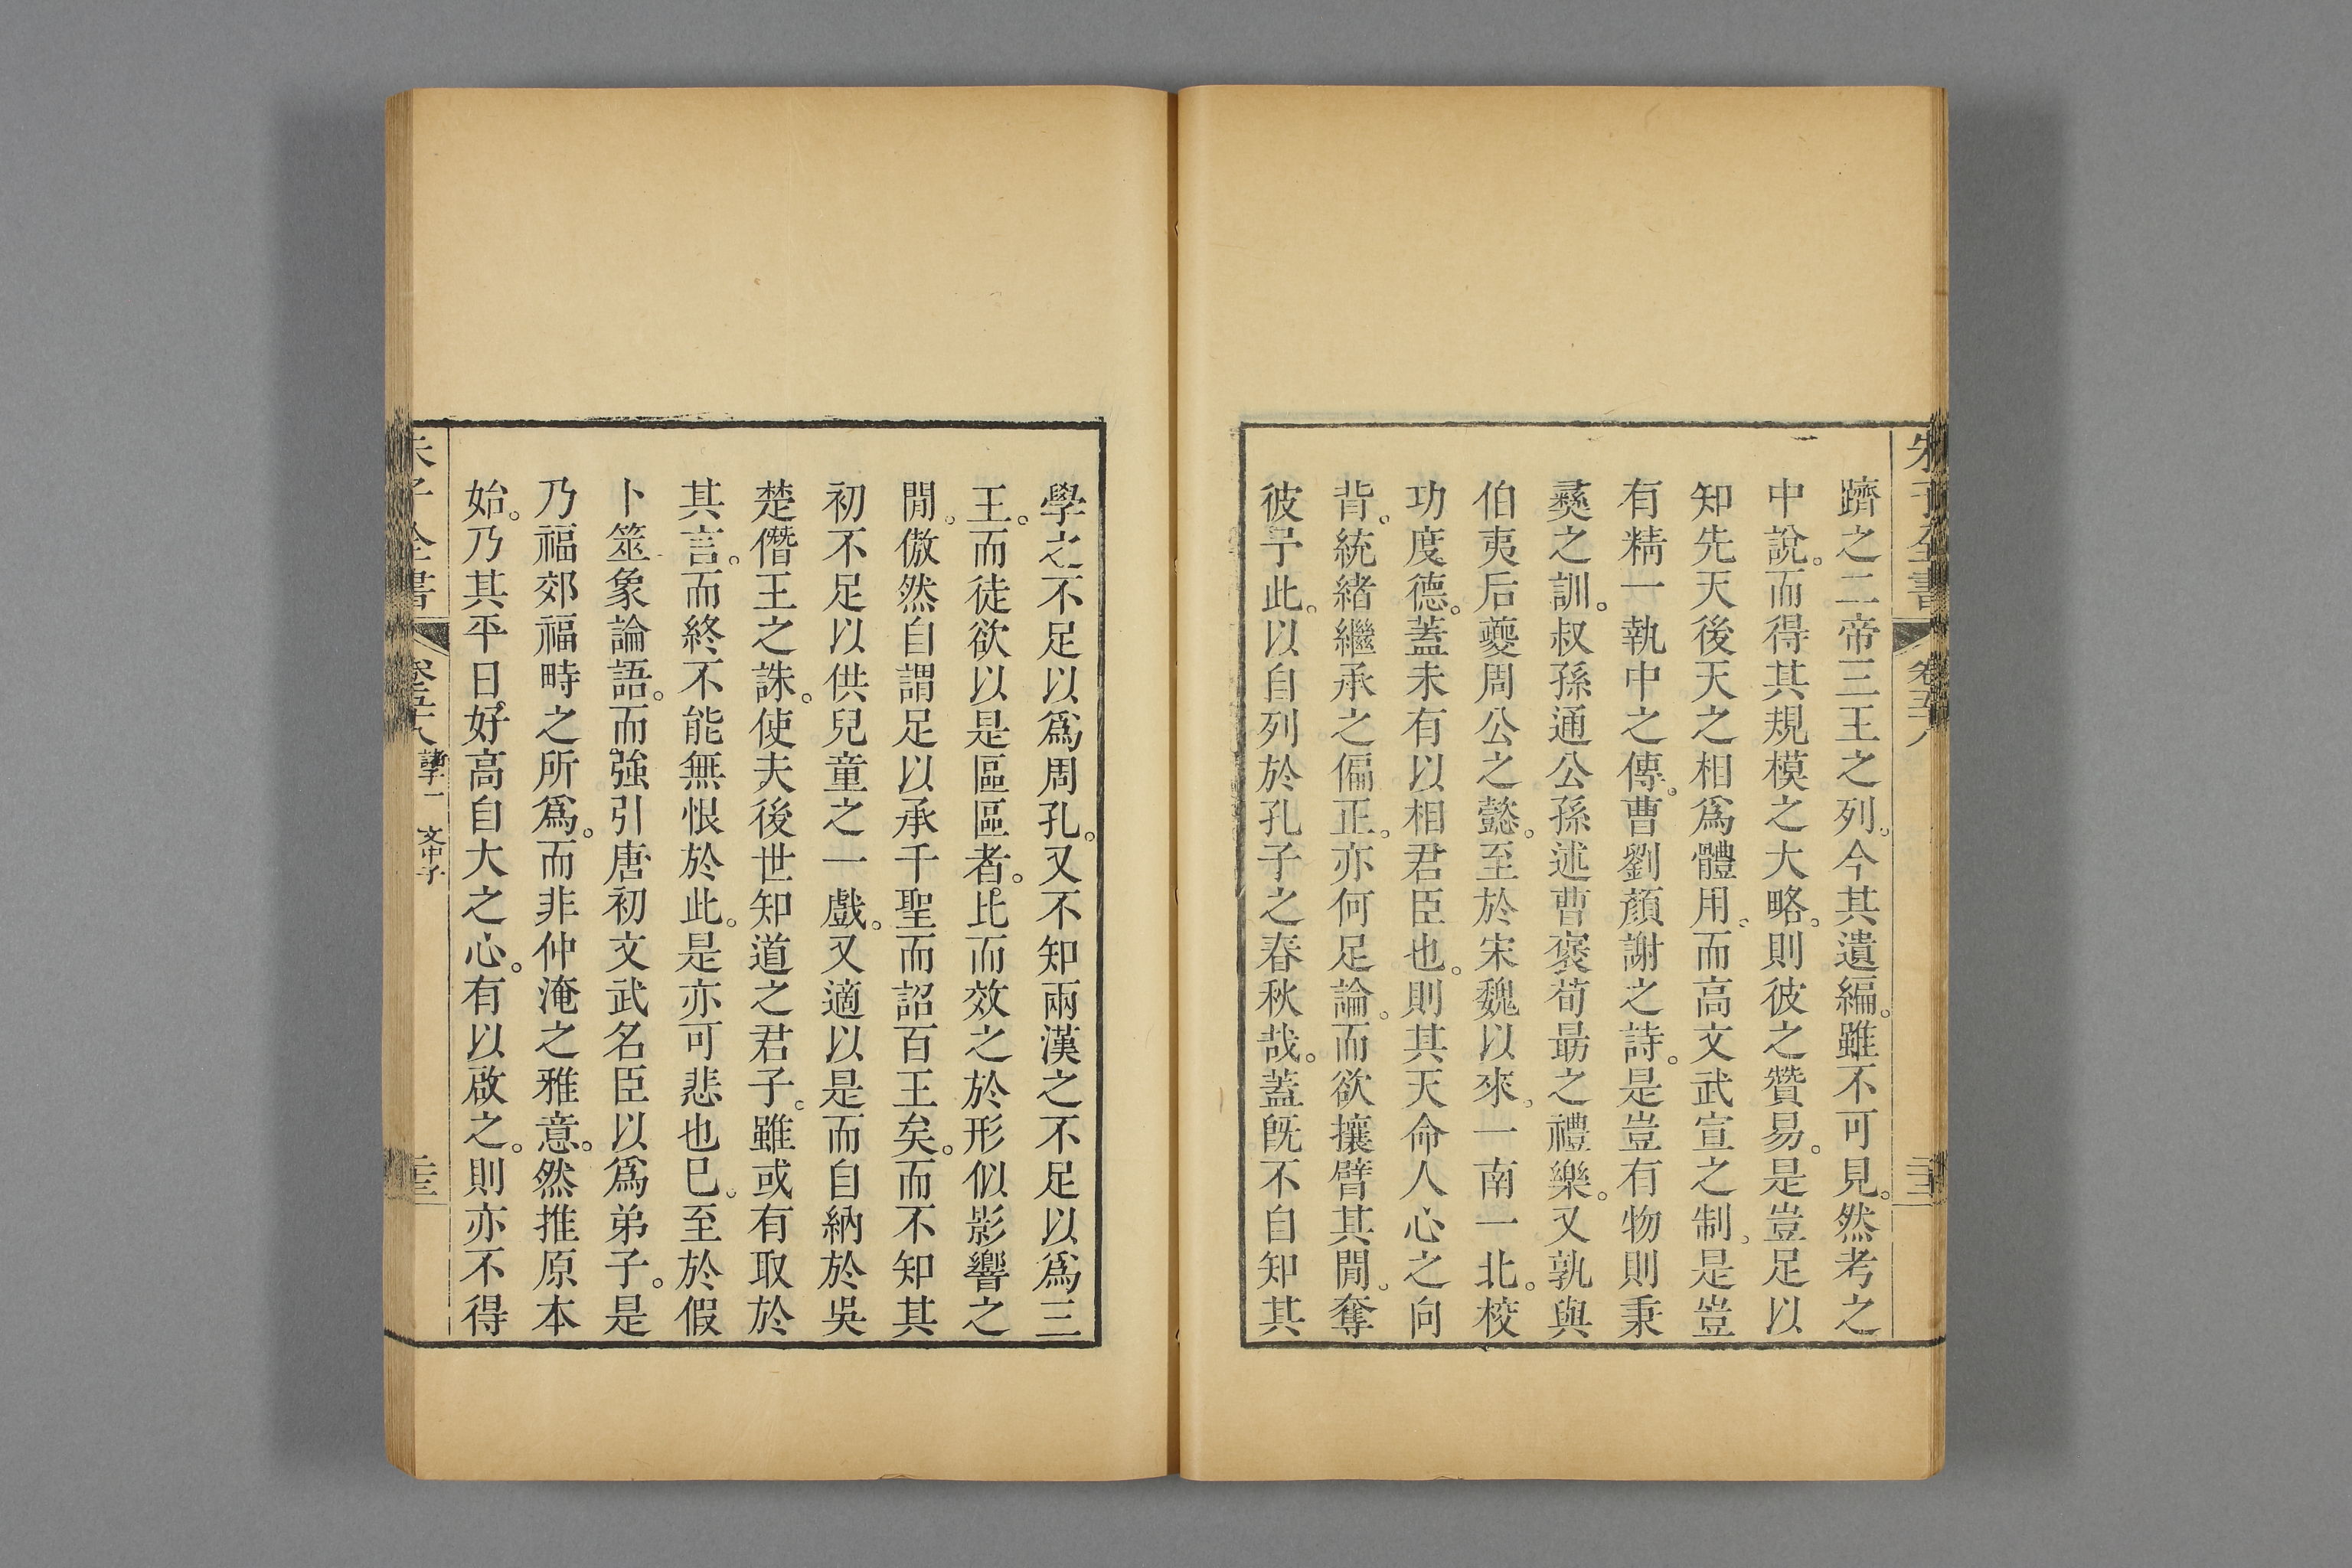 躋之二帝三王之列。今其遺編。雖不可見。然考之
中說。而得其規模之大略。則彼之贊易。是豈足以
知先天後天之相爲體用。而高文武宣之制。是豈
有精一執中之傳。曹劉顏謝之詩。是豈有物則秉
彞之訓。叔孫通公孫述曹褒荀勗之禮樂。又孰與
伯夷后夔周公之懿。至於宋魏以來。一南一北。校
功度德。蓋未有以相君臣也。則其天命人心之向
背。統緒繼承之偏正。亦何足論。而欲攘臂其閒。奪
彼予此。以自列於孔子之春秋哉。蓋旣不自知其
學之不足以爲周孔。又不知兩漢之不足以爲三
王。而徒欲以是區區者。比而效之於形似影響之
閒。傲然自謂足以承千聖而詔百王矣。而不知其
初不足以供兒童之一戲。又適以是而自納於吳
楚僭王之誅。使夫後世知道之君子。雖或有取於
其言。而終不能無恨於此。是亦可悲也巳。至於假
卜筮象論語。而強引唐初文武名臣以爲弟子。是
乃福郊福畤之所爲。而非仲淹之雅意。然推原本
始。乃其平日好高自大之心。有以啟之。則亦不得
朱子全書 卷五十八 諸子一 文中子